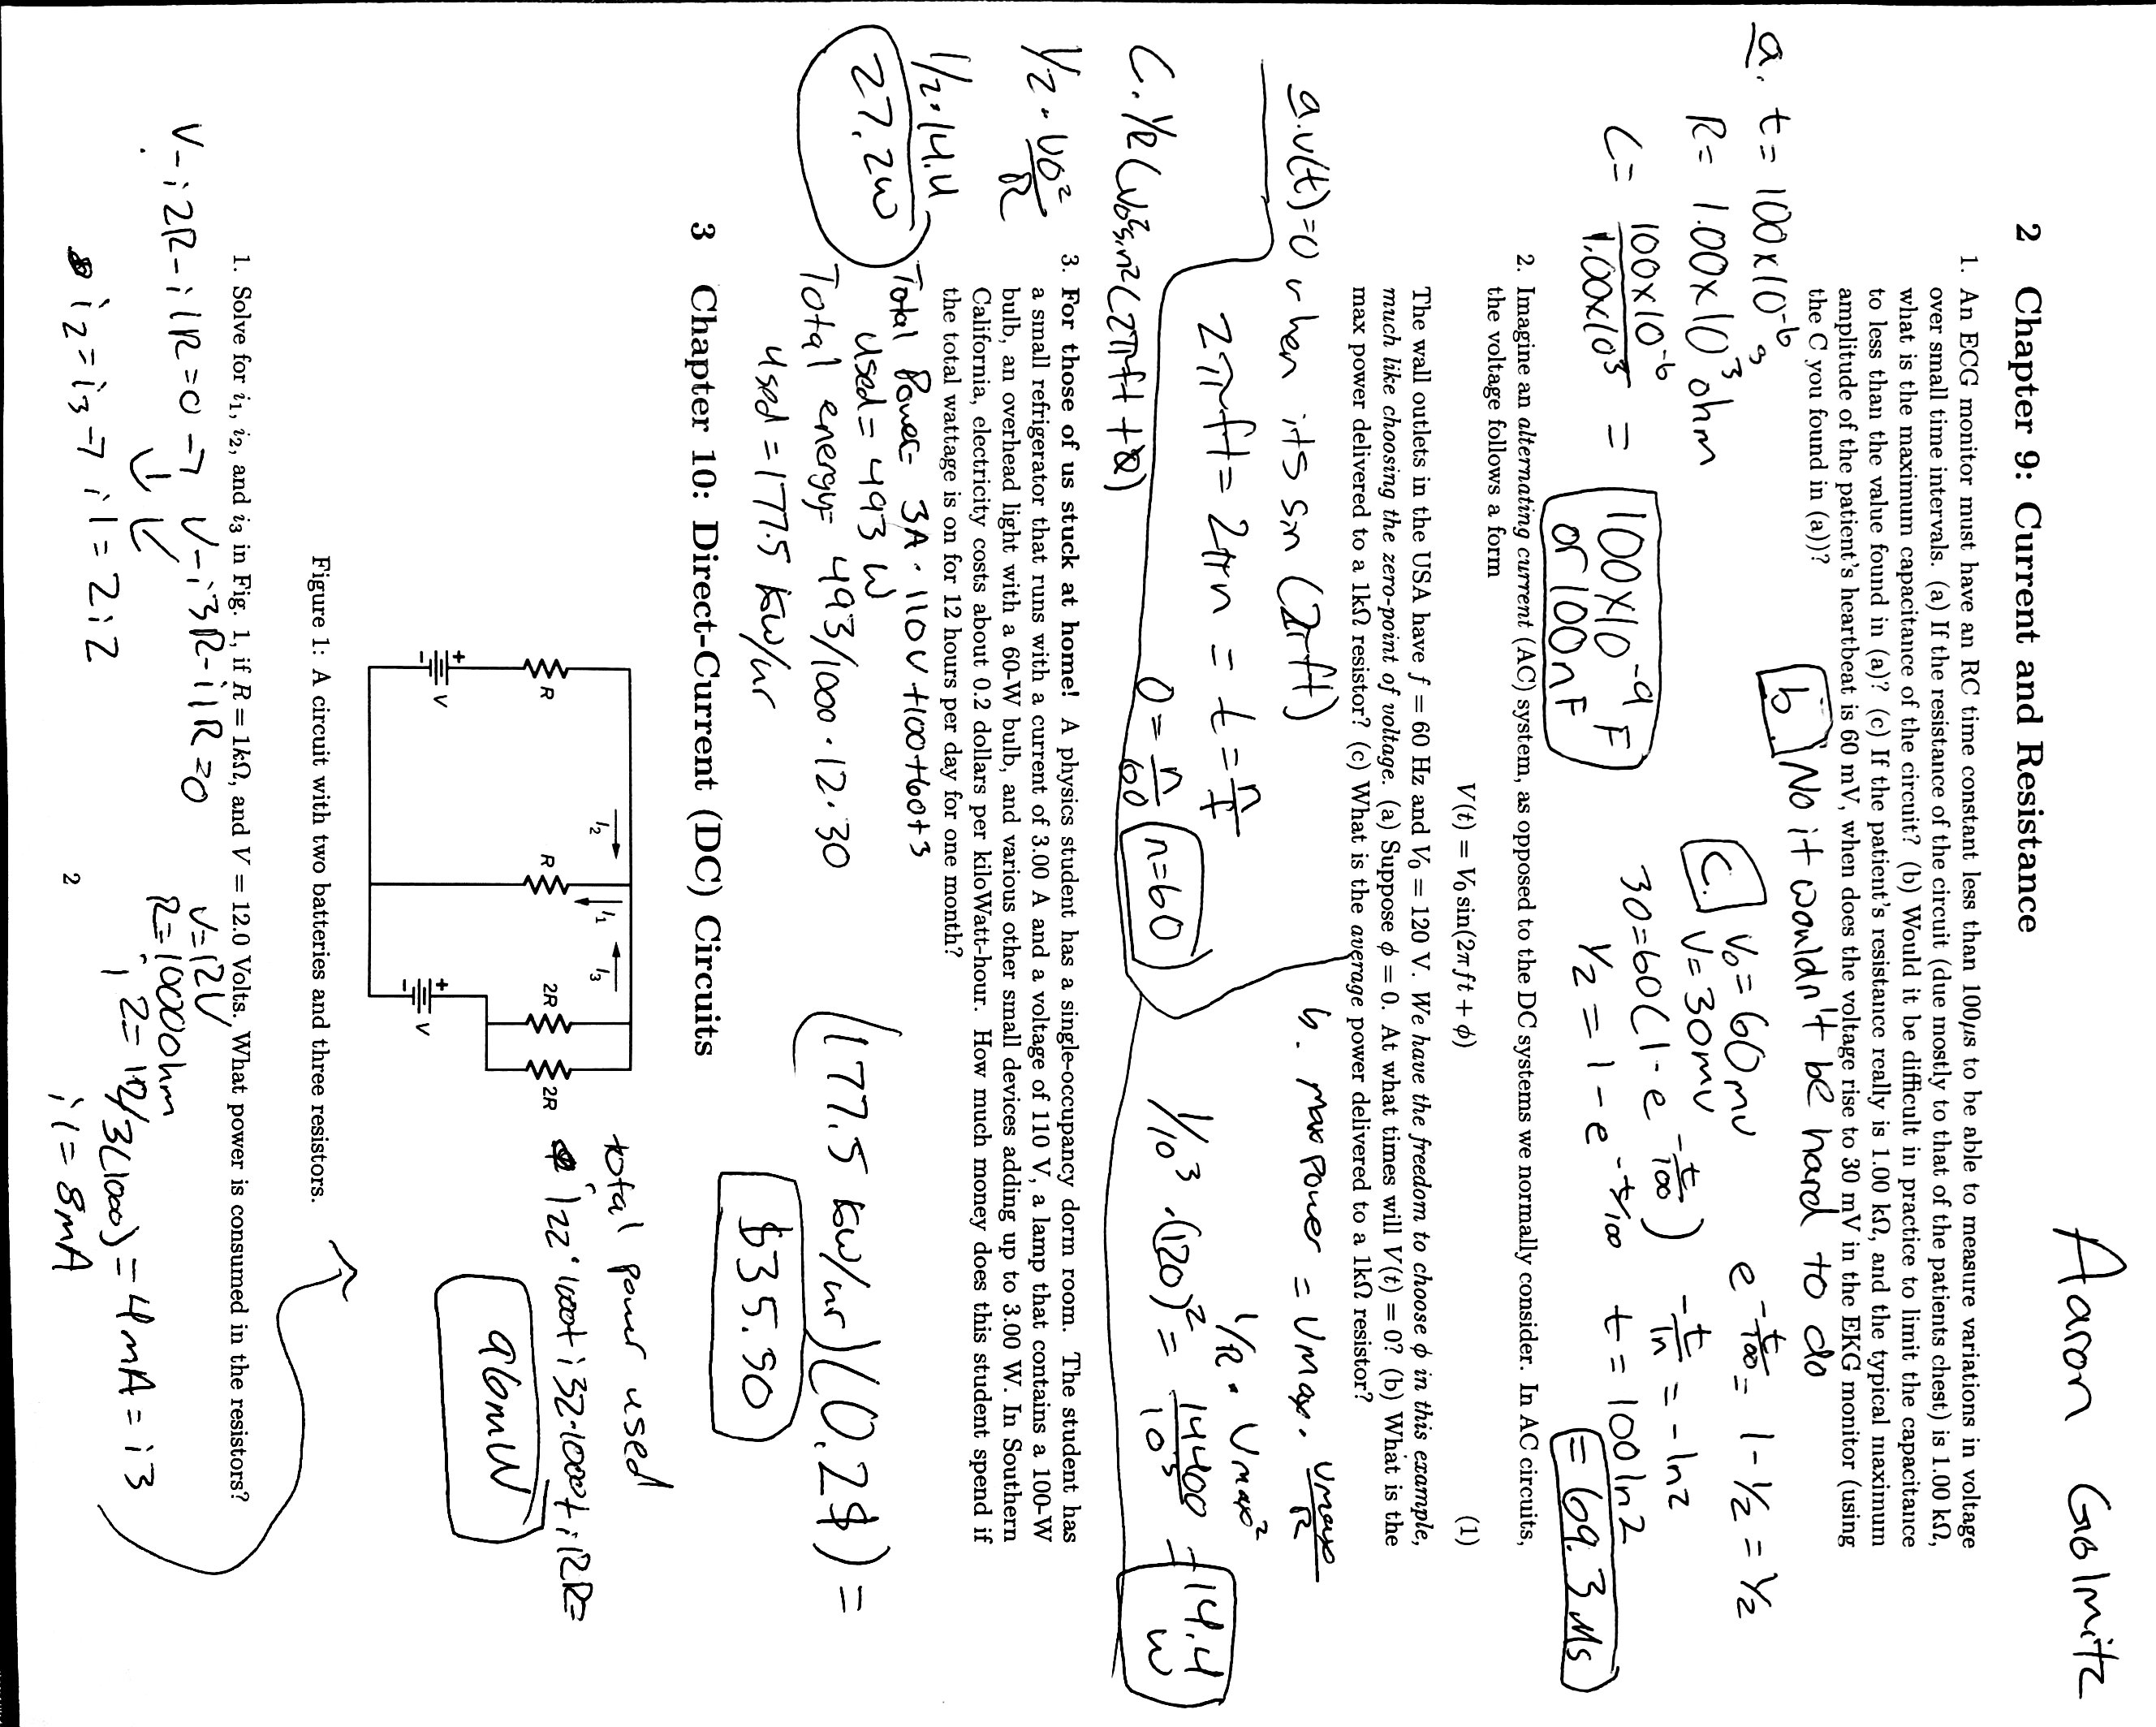 Aaron Golmitz
2 Chapter 9: Current and Resistance
1. An ECG monitor must have an RC time constant less than 100μs to be able to measure variations in voltage
over small time intervals. (a) If the resistance of the circuit (due mostly to that of the patients chest) is 1.00 kΩ,
what is the maximum capacitance of the circuit? (b) Would it be difficult in practice to limit the capacitance
to less than the value found in (a)? (c) If the patient's resistance really is 1.00 kΩ, and the typical maximum
amplitude of the patient's heartbeat is 60 mV, when does the voltage rise to 30 mV in the EKG monitor (using
the C you found in (a))?
a. t = 100x10^-6 s
R = 1.00x10^3 ohm
C = 100x10^-6 / 1.00x10^3 = 100x10^-9 F
or 100nF
b. No it wouldn't be hard to do
C. V0 = 60mv
V = 30mv
30=60(1-e^-t/100)
1/2 = 1-e^-t/100
e^-t/100 = 1-1/2 = 1/2
-t/ln = -ln2
t = 100ln2
= 69.3 Ms
2. Imagine an alternating current (AC) system, as opposed to the DC systems we normally consider. In AC circuits,
the voltage follows a form
V(t) = V0 sin(2πft + ϕ) (1)
The wall outlets in the USA have f = 60 Hz and V0 = 120 V. We have the freedom to choose ϕ in this example,
much like choosing the zero-point of voltage. (a) Suppose ϕ = 0. At what times will V(t) = 0? (b) What is the
max power delivered to a 1kΩ resistor? (c) What is the average power delivered to a 1kΩ resistor?
a. v(t)=0 when its sin (2πft)
2πft = 2πn = t = n/f
0 = n/60 n=60
b. max power = Vmax · Vmax/R
1/R · Vmax²
1/10³ · (120)² = 14400/10³ = 14.4 w
C. 1/R (V0² sin² (2πft + ϕ)
1/2 · V0²/R
1/2 · 14.4
27.2w
3. For those of us stuck at home! A physics student has a single-occupancy dorm room. The student has
a small refrigerator that runs with a current of 3.00 A and a voltage of 110 V, a lamp that contains a 100-W
bulb, an overhead light with a 60-W bulb, and various other small devices adding up to 3.00 W. In Southern
California, electricity costs about 0.2 dollars per kiloWatt-hour. How much money does this student spend if
the total wattage is on for 12 hours per day for one month?
Total Power = 3A · 110v +100+60+3
used = 493 W
Total energy = 493/1000 · 12 · 30
used = 177.5 kw/hr
(177.5 kw/hr)(0.2$) =
$35.50
3 Chapter 10: Direct-Current (DC) Circuits
i2
i1
i3
R
R
2R
2R
+
-
V
+
-
V
Figure 1: A circuit with two batteries and three resistors.
total power used
i22·1000+i32·1000+i12R=
96mW
1. Solve for i1, i2, and i3 in Fig. 1, if R = 1kΩ, and V = 12.0 Volts. What power is consumed in the resistors?
V-i2R-i1R=0 → V-i3R-i1R=0
i2=i3→ i1=2i2
V=12V
R=1000ohm
i2=12/3(1000)=4mA=i3
i1=8mA
2